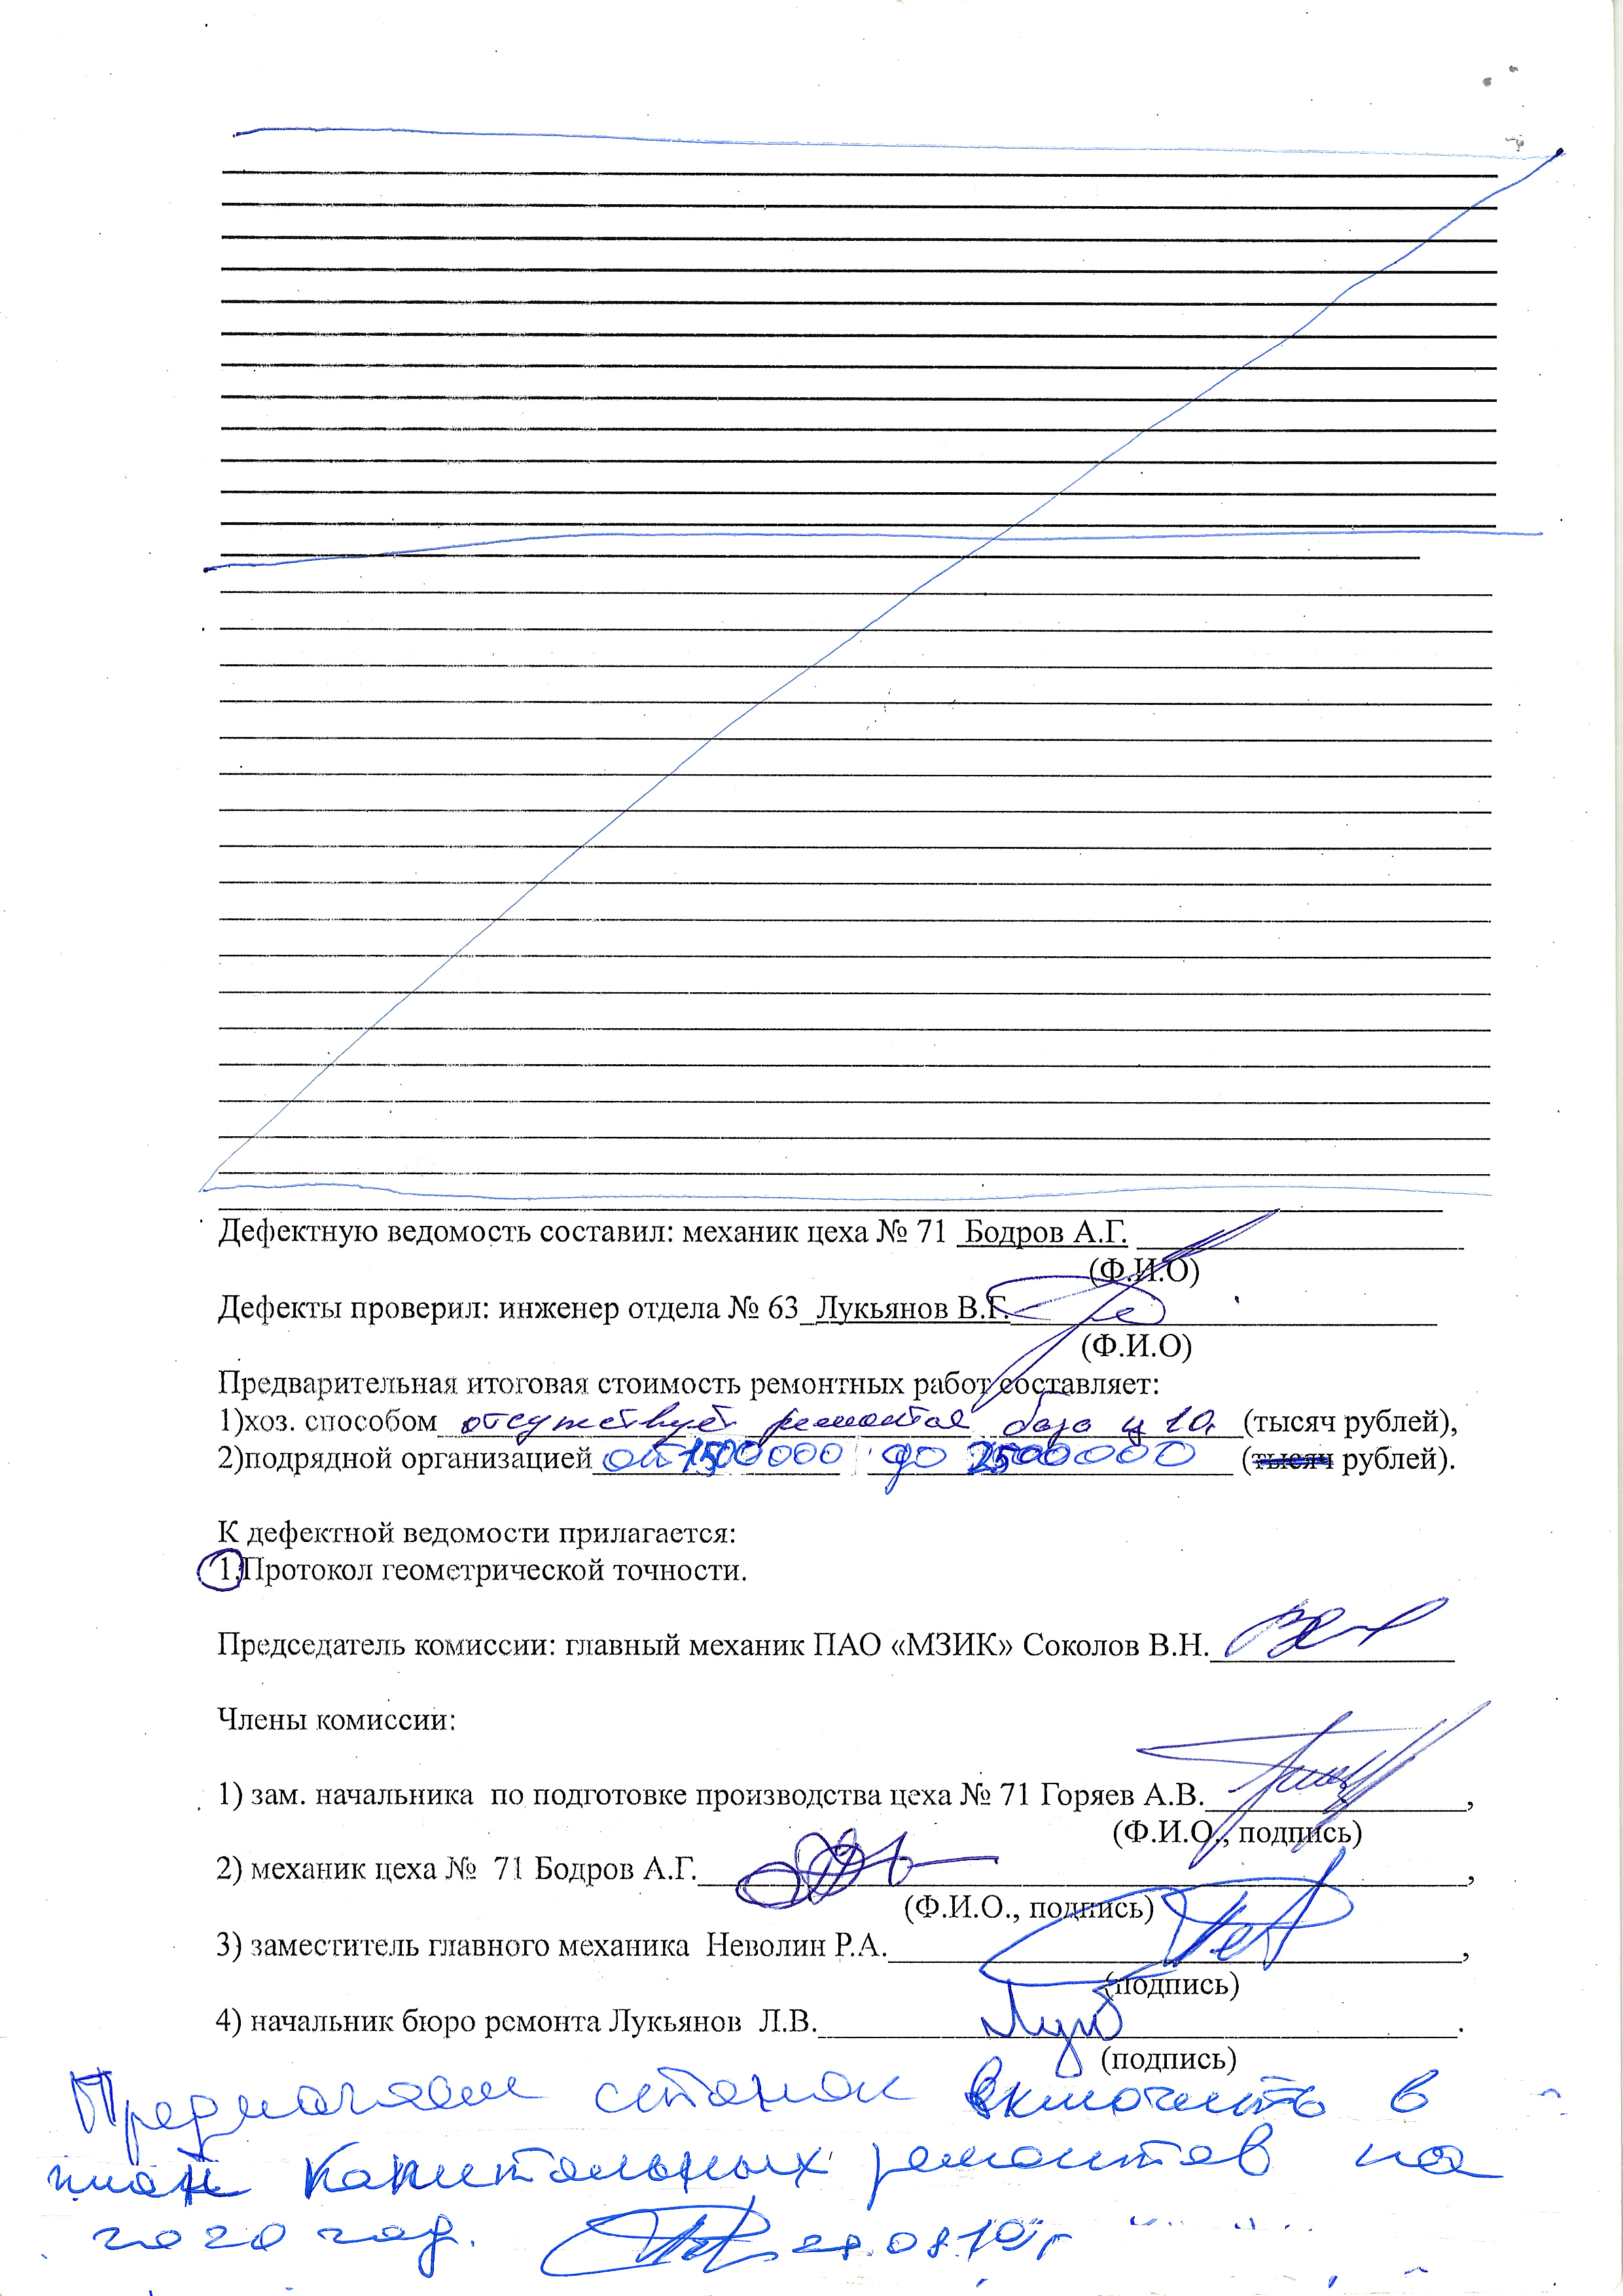 Дефектную ведомость составил: механик цеха № 71 Бодров А.Г.
(Ф.И.О)
Дефекты проверил: инженер отдела № 63 Лукьянов В.Г.
(Ф.И.О)
Предварительная итоговая стоимость ремонтных работ составляет:
1)хоз. способом отсутствует ремонтная база ц 10. (тысяч рублей),
2)подрядной организацией от 1500000 до 2500000 (тысяч рублей).
К дефектной ведомости прилагается:
1.Протокол геометрической точности.
Председатель комиссии: главный механик ПАО «МЗИК» Соколов В.Н.
Члены комиссии:
1) зам. начальника по подготовке производства цеха № 71 Горяев А.В.,
(Ф.И.О., подпись)
2) механик цеха № 71 Бодров А.Г.,
(Ф.И.О., подпись)
3) заместитель главного механика Неволин Р.А.,
(подпись)
4) начальник бюро ремонта Лукьянов Л.В.
(подпись)
Предлагаем станок включить в
план капитальных ремонтов на
2020 год. 28.08.19г